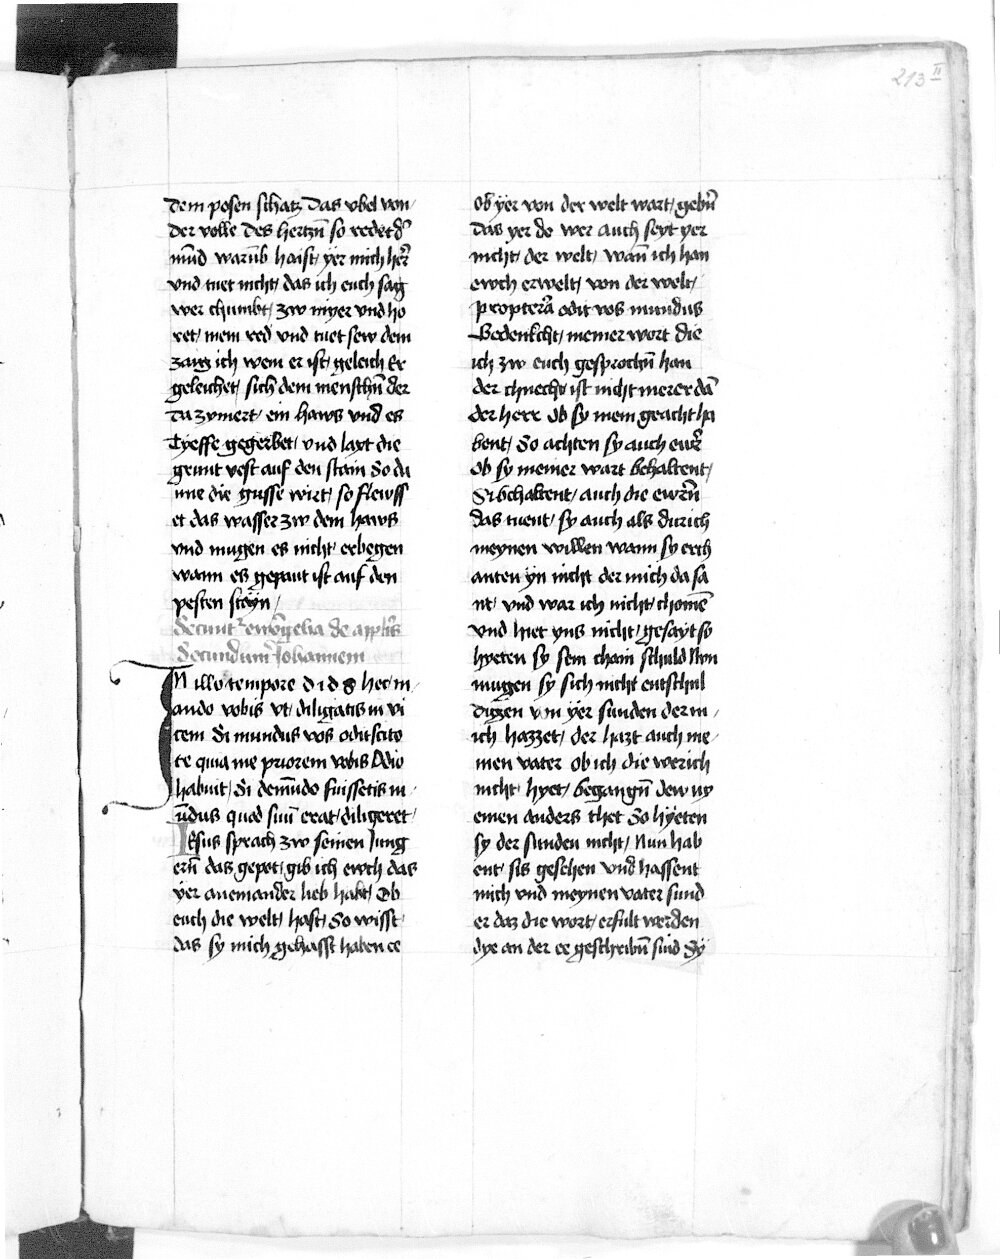 213 II
dem posen schatz Das vbel von /
der volle des hertzn̄ so redet d̕
mūd warūb haist / yer mich her̄
vnd tuet nicht / das ich euch sag
wer chumbt / zw myer vnd ho
ret / mein red vnd tuet sew dem
zaig ich wem er ist / geleich Er
geleichet / sich dem menschn̄ der
da zymert / ein haws vnd es
Tyeffe gegerbet / vnd laxt die
grunt vest auf den stain So da
nne die gusse wirt / so flewss
et das wasser zw dem haws
vnd mugen es nicht / erbegen
wann es gepaut ist auf den
pesten stayn /
Secundum Johannem
In illo tempore d i d s hec m /
ando vobis vt / diligatis in vi
cem Si mundus vos odit scito
te quia me priorem vobis Odio
habuit / Si demūdo fuissetis m /
ūdus quod suū erat / diligeret /
Jesus sprach zw seinen Jung
ern̄ das gepot / gib ich ewch das
yer aneinander lieb habt / Ob
euch die welt / hast / So wisst /
das sy mich gehasst haben ee
ob yer von der welt wart / gebn̄
das yer do wer auch seyt yer
nicht / der welt / wan̄ ich han
ewch erwelt / von der welt /
propterea odit vos mundus
Bedenkcht / meiner wort die
ich zw euch gesprochn̄ han
der chnecht ist nicht merer dā
der herr Ob sy mein geacht ha
bent / So achten sy auch ewr̄
Ob sy meiner wart behaltent /
Si behaltent / auch die ewrn̄
das tuent / sy auch als durich
meynen willen wann sy erch
anten yn nicht der mich da sa
nt / vnd war ich nicht / chomē
vnd hiet yns nicht / gesayt so
hyeten sy sein chain schuld Nun
mugen sy sich nicht entschul
digen von yer sunden der m /
ich hazzet / der hazt auch me /
inen vater ob ich die werich
nicht / hyet / begangn̄ dew ny
emen anders thet So hyeten
sy der sunden nicht / Nun hab
ent / sis gesehen vnd hassent
mich vnd meynen vater sund
er daz die wort / erfult werden
dye an der ee geschribn̄ sind Sy